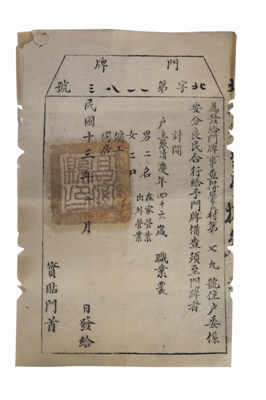 門牌
北字第一一八八三號
為發給門牌事查
村第七九號住户委係
安分良民合行給予門牌備查須至門牌者
計開
户主張清慶年四十六歲 職業農
男二名 在家營業 出外營業
女二口
傭工
同居
民國十三年 月 日發給
實貼門首